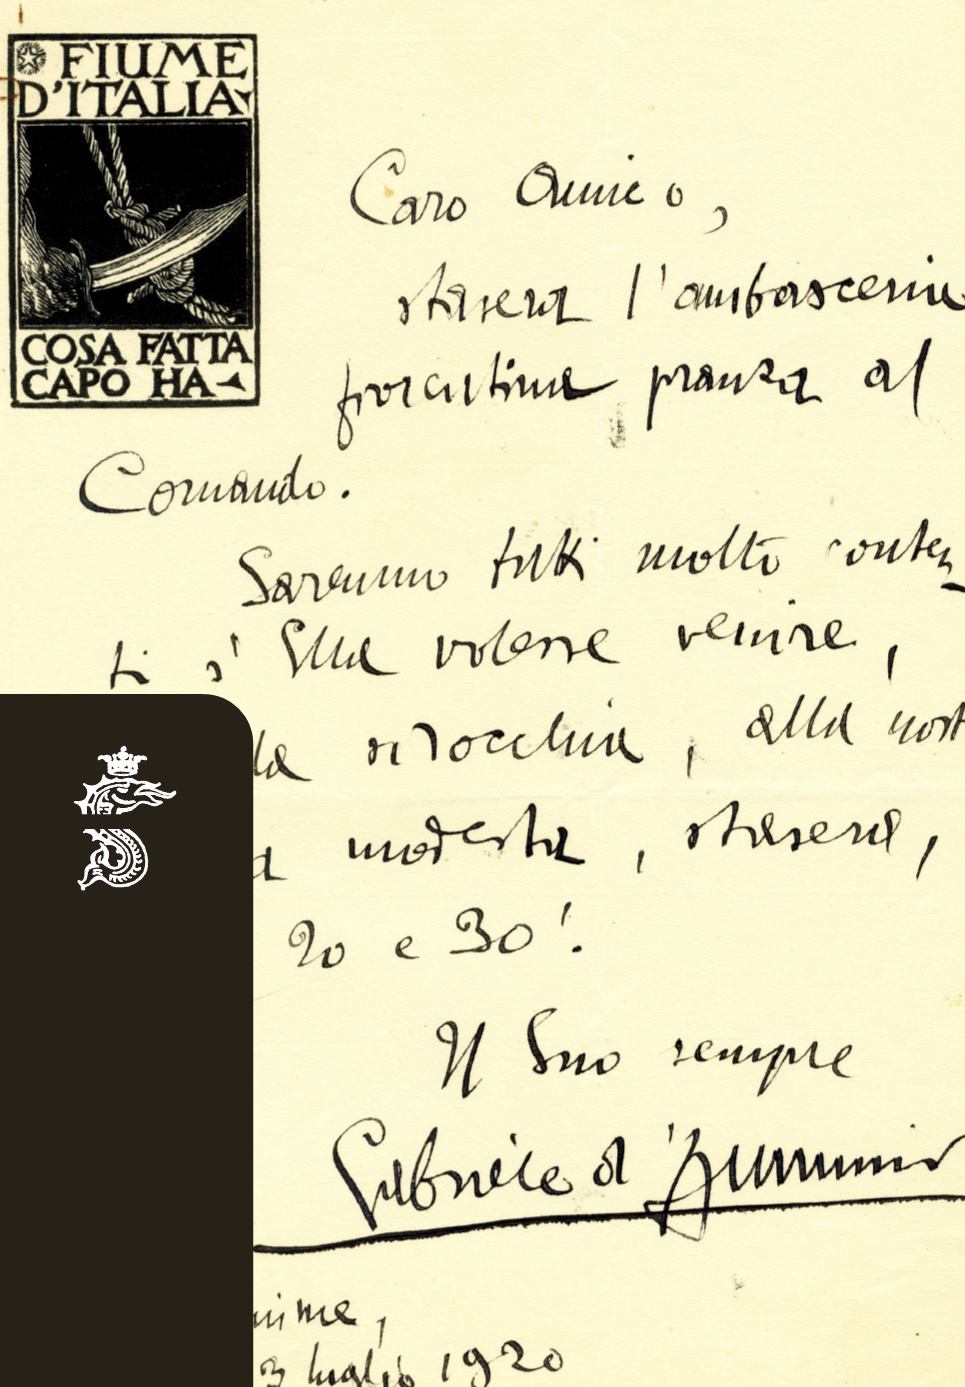 FIUME
D'ITALIA
COSA FATTA
CAPO HA
Caro Amico,
stasera l'ambasceria
fiorentina pranza al
Comando.
Saremmo tutti molto conten-
ti s'Ella volesse venire,
la sirocchia, alla nost
a modesta, stasera,
20 e 30'.
Il Suo sempre
Gabriele d'Annunzio
iume,
3 luglio 1920